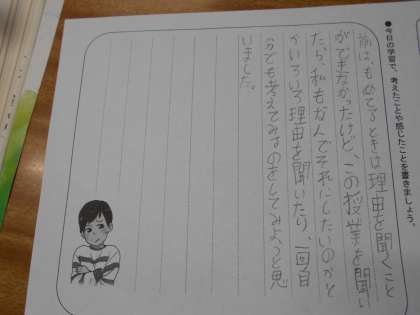 ●今日の学習で、考えたことや感じたことを書きましょう。
前は、もめてるときは理由を聞くこと
ができなかったけど、この授業を聞い
たら、私もなんでそれにしたいのかと
かいろいろ理由を聞いたり、一回自
分でも考えてみるのをしてみようと思
いました。